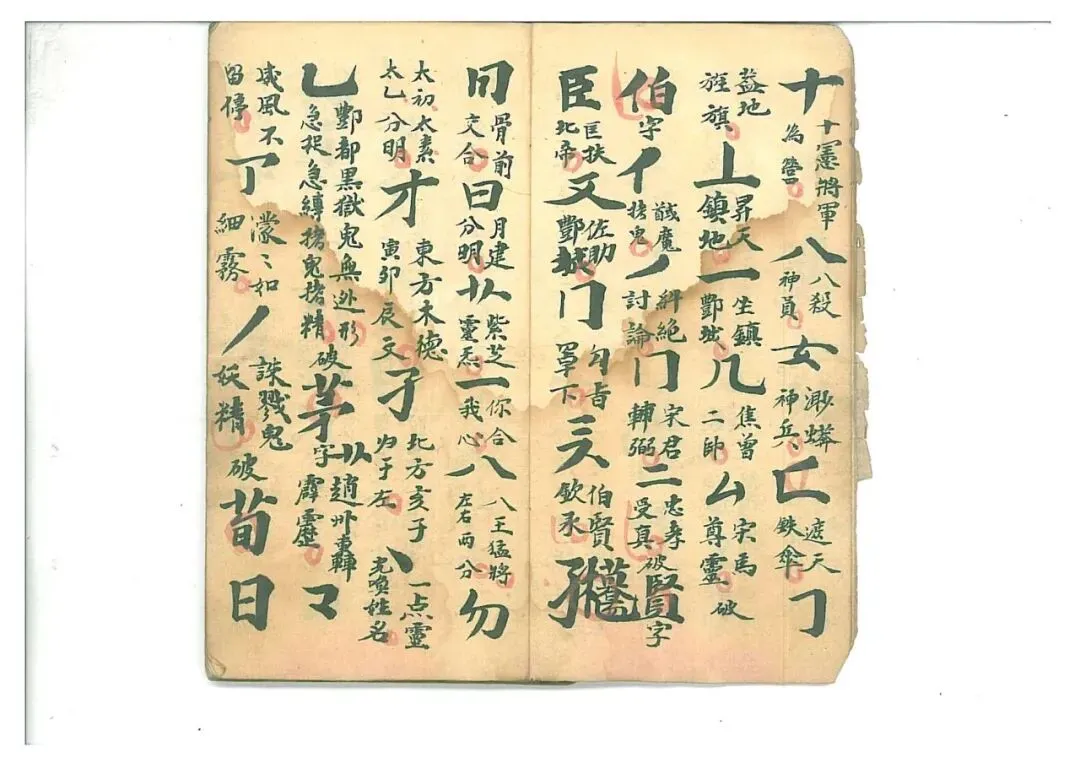 十十憲將軍為營八八殺神員女渺蟒神兵匚遮天鉄傘𠃌
益地旌旗上昇天鎮地一坐鎮酆城几焦曾二帥厶宋馬尊靈破
伯字亻馘魔拷鬼丿糾絕討論冂宋君輔弼二忠孝受真破賢字
臣匡扶北帝又佐助酆城冂勾旨罩下伯賢欽承孫
冃骨前交合曰月建分明紫芝靈炁一你合我心八八王猛將左右兩分勿
太初太素太乙分明才東方木德寅卯辰文子北方亥子归于左丶一点靈光喚姓名
乚酆都黑獄鬼無边形急捉急縛拷鬼拷精破茅字霹靂龴
威風不留停丁濛〻如細霧丿誅戮鬼妖精破荀日